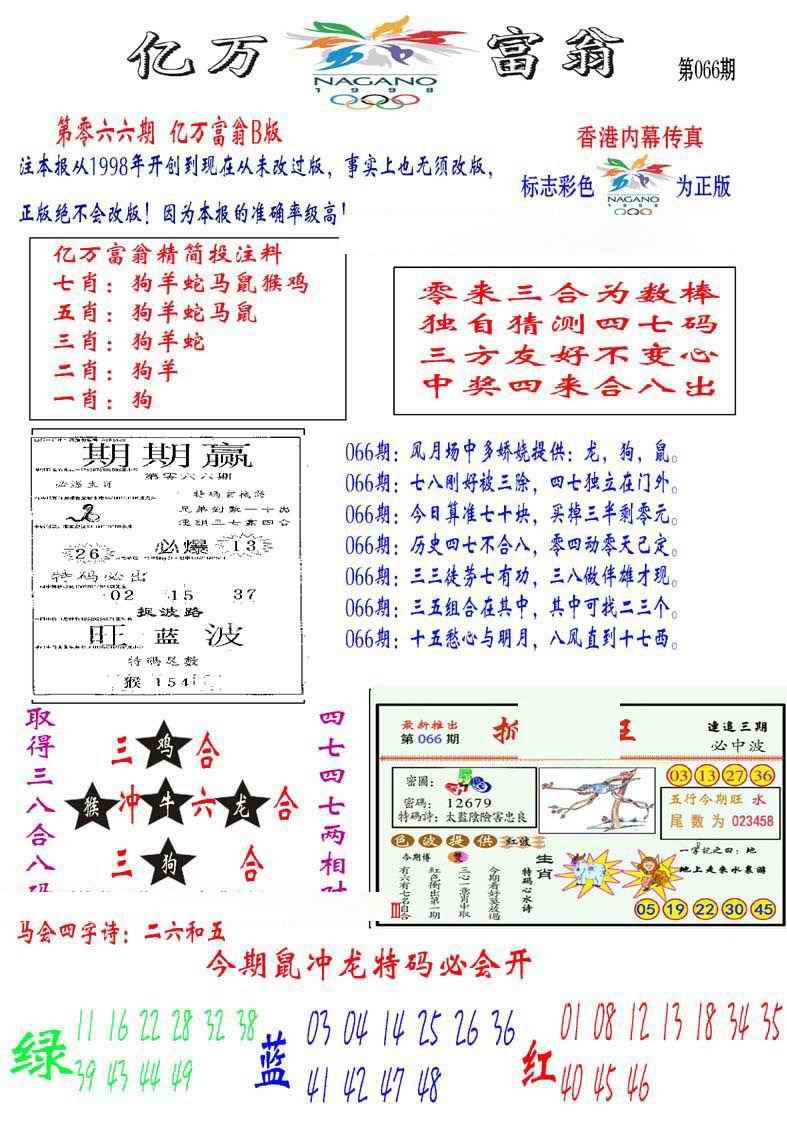 亿万富翁
NAGANO
1998
第066期
第零六六期 亿万富翁B版
注本报从1998年开创到现在从未改过版，事实上也无须改版，
正版绝不会改版！因为本报的准确率级高！
香港内幕传真
标志彩色
NAGANO
1998
为正版
亿万富翁精简投注料
七肖：狗羊蛇马鼠猴鸡
五肖：狗羊蛇马鼠
三肖：狗羊蛇
二肖：狗羊
一肖：狗
零来三合为数棒
独自猜测四七码
三方友好不变心
中奖四来合八出
期期赢
第零六六期
必爆
26
13
特码必出
02 15 37
捉波路
旺蓝波
特碼尾数
猴 154
066期：风月场中多娇娆提供：龙，狗，鼠。
066期：七八刚好被三除，四七独立在门外。
066期：今日算准七十块，买掉三半剩零元。
066期：历史四七不合八，零四动零天已定。
066期：三三徒劳七有功，三八做伴雄才现。
066期：三五组合在其中，其中可找二三个。
066期：十五愁心与明月，八风直到十七西。
取得三八合八码
三 鸡 合
猴 冲 牛 六 龙 合
三 狗 合
四七四七两相对
最新推出
第066期
连追三期
必中波
密圖：
密碼： 12679
特碼詩：太監陰險害忠良
03 13 27 36
五行今期旺 水
尾数为 023458
色波提供 红波
今期博
有六有七名自合
红色衝出第一期
三心一意肖中取
生肖
特碼心水诗
地上走来水裏游
05 19 22 30 45
马会四字诗：二六和五
今期鼠冲龙特码必会开
绿
11 16 22 28 32 38
39 43 44 49
蓝
03 04 14 25 26 36
41 42 47 48
红
01 08 12 13 18 34 35
40 45 46